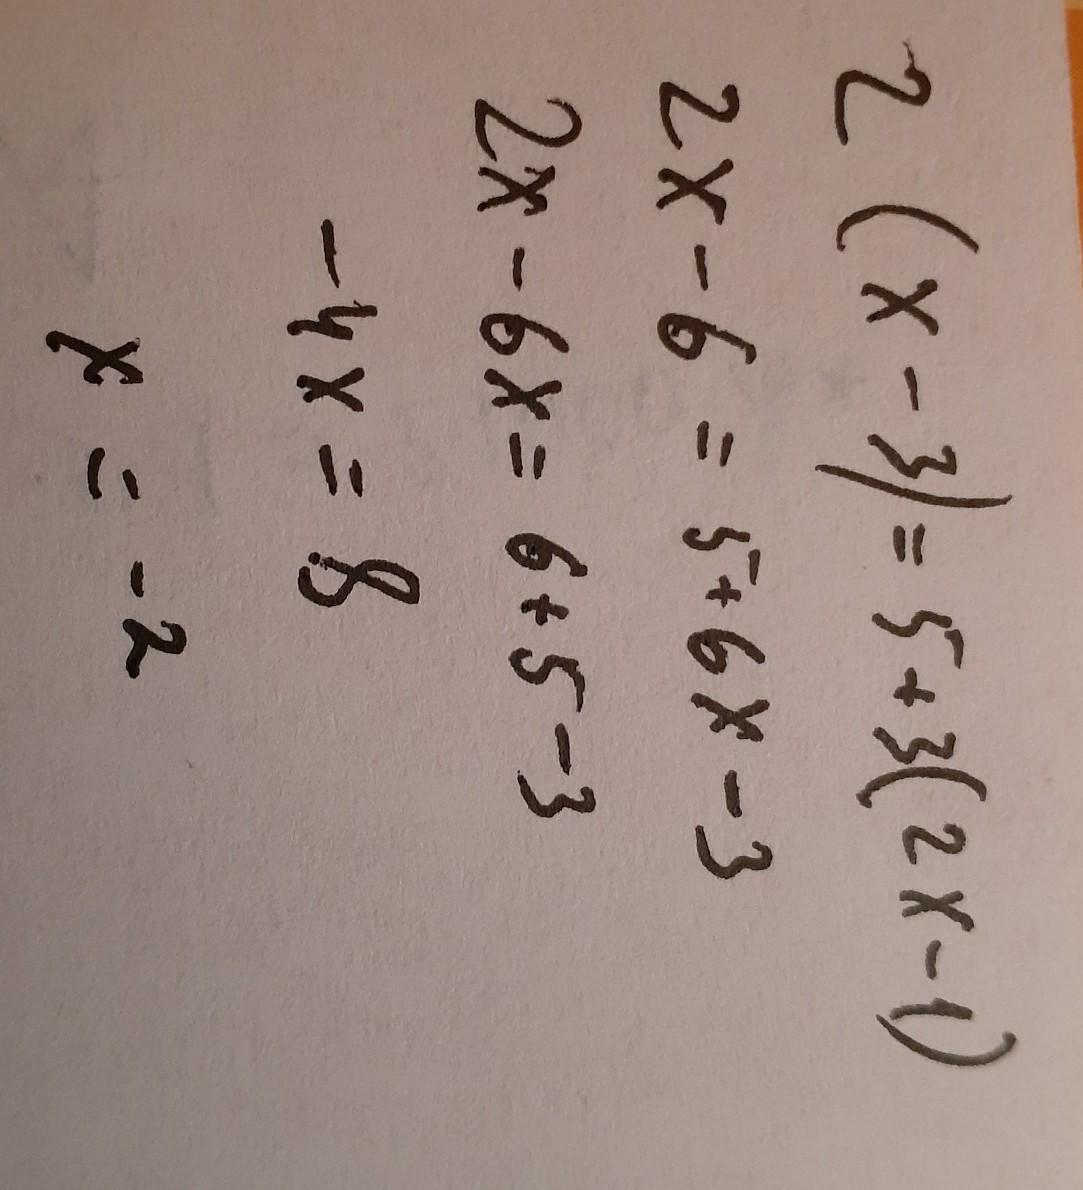 2(x-3)=5+3(2x-1)
2x-6=5+6x-3
2x-6x=6+5-3
-4x=8
x=-2